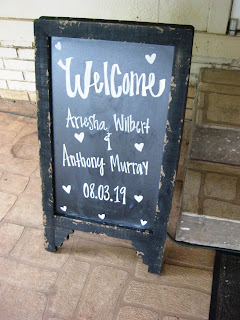 Welcome
Ariesha Wilbert
&
Anthony Murray
08.03.19